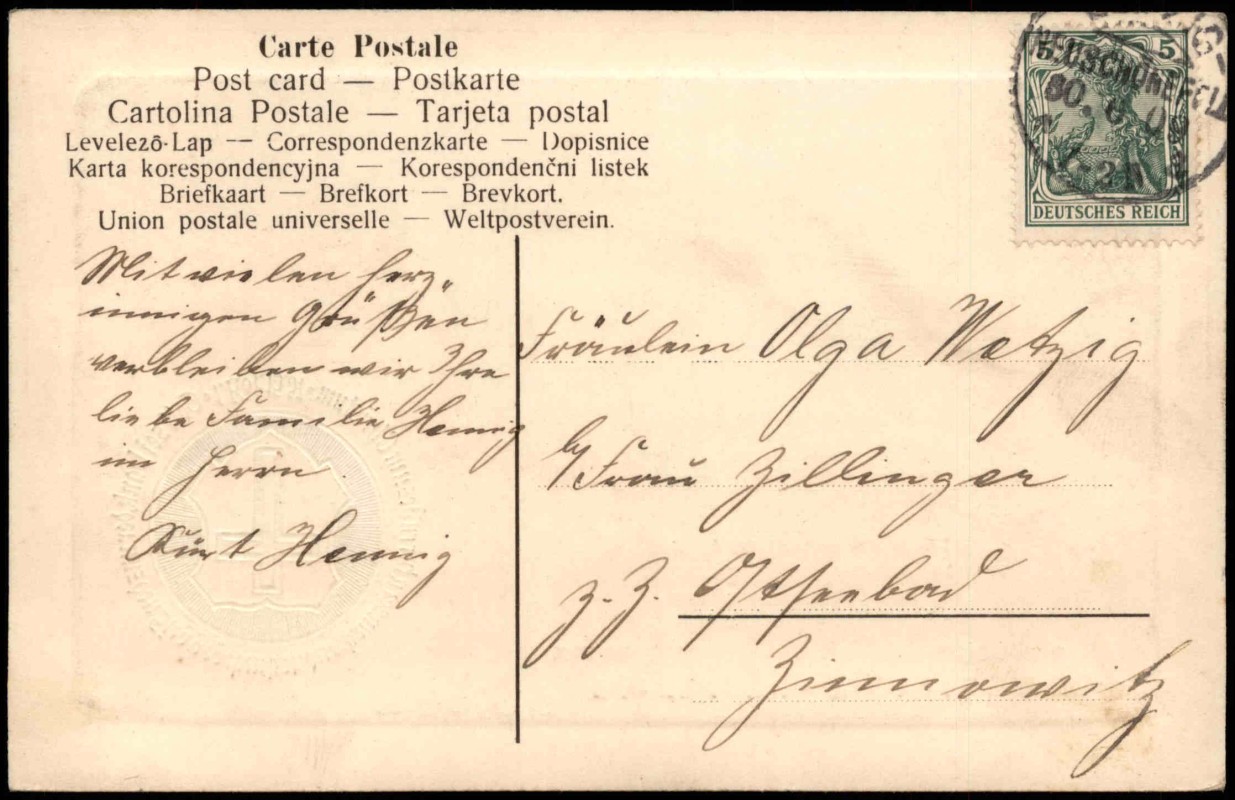 Carte Postale
Post card — Postkarte
Cartolina Postale — Tarjeta postal
Levelezõ-Lap — Correspondenzkarte — Dopisnice
Karta korespondencyjna — Korespondenčni listek
Briefkaart — Brefkort — Brevkort.
Union postale universelle — Weltpostverein.
5 5
DEUTSCHES REICH
Mit vielen herz-
innigen Grüßen
verbleiben wir Ihre
liebe Familie Hennig
im Herrn
Kurt Hennig
Fräulein Olga Watzig
b/ Frau Zillinger
z. Z. Ostseebad
Zinnowitz